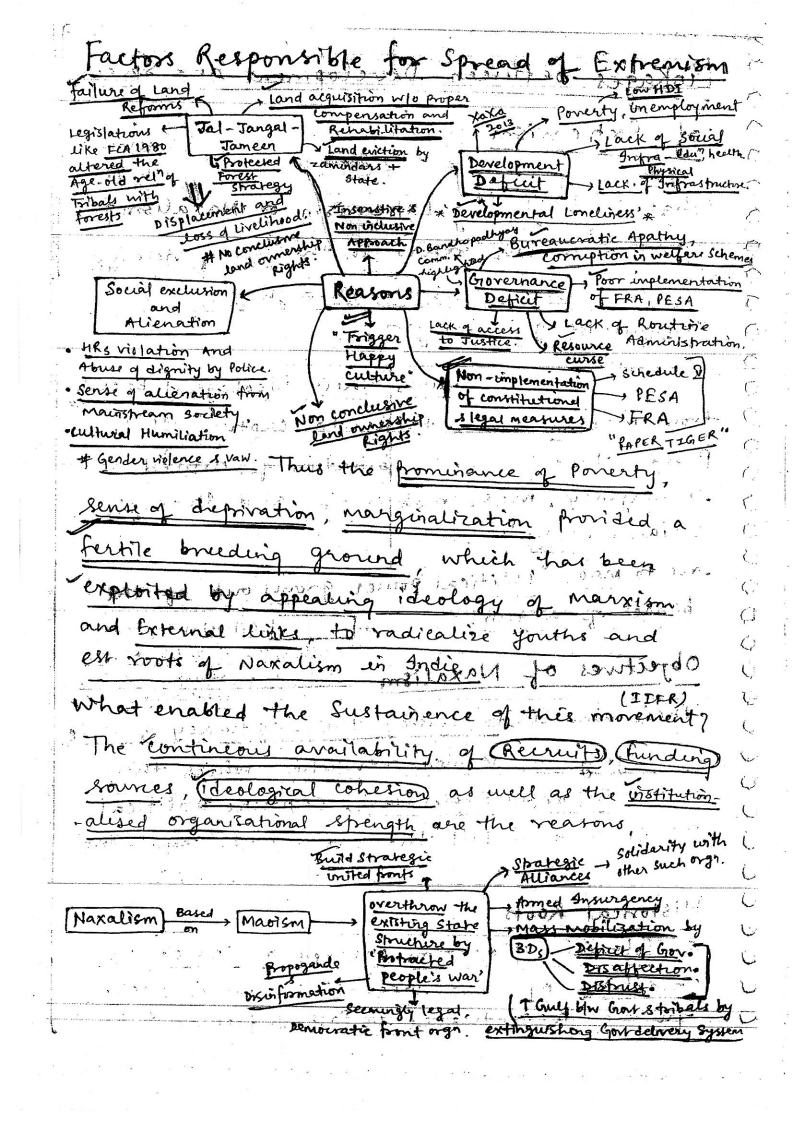 Factors Responsible for Spread of Extremism
Failure of Land
Reforms
Land acquisition w/o proper
compensation and
Rehabilitation.
Jal-Jangal-
Jameen
Legislations
like FCA 1980
altered the
Age-old relⁿ of
Tribals with
Forests
Protected
Forest
Strategy
Land eviction by
zamindars +
State.
Displacement and
loss of Livelihood.
# No conclusive
land ownership
Rights.
Xaxa
2013
Low HDI
Poverty, Unemployment
Development
Deficit
Lack of Social
Infra - eduⁿ, health
Physical
Lack of Infrastructure
* 'Developmental Loneliness' *
Insensitive &
Non inclusive
Approach
D. Bandhopadhyay
Comm.
highlighted
Bureaucratic Apathy,
corruption in welfare schemes
Governance
Deficit
Poor implementation
of FRA, PESA
Lack of access
to Justice.
Lack of Routine
Administration.
Resource
curse
Social exclusion
and
Alienation
Reasons
"Trigger
Happy
culture"
Non conclusive
land ownership
Rights.
Non-implementation
of constitutional
& legal measures
Schedule
PESA
FRA
"PAPER TIGER"
• HRs violation And
Abuse of dignity by Police.
• Sense of alienation from
Mainstream Society.
• Cultural Humiliation
# Gender violence & VAW.
Thus the prominance of Poverty,
sense of deprivation, marginalization provided a
fertile breeding ground, which has been
exploited by appealing ideology of Marxism
and External links, to radicalize youths and
est roots of Naxalism in India
(IIFR)
What enabled the Sustainence of this movement?
The contineous availability of Recruits, Funding
sources, ideological cohesion as well as the institution-
-alised organisational strength are the reasons
Build Strategic
United fronts
Strategic
Alliances → Solidarity with
other such orgn.
Naxalism
Based
on
Maoism
overthrow the
existing State
structure by
'Protracted
people's war'
Armed Insurgency
Mass mobilization by
3Ds
Deficit of Gov.
Disaffection.
Distrust.
Propoganda
&
Disinformation
Seemingly legal,
Democratic front orgn.
↑ Gulf b/w Govt & tribals by
extinguishing Govt delivery System